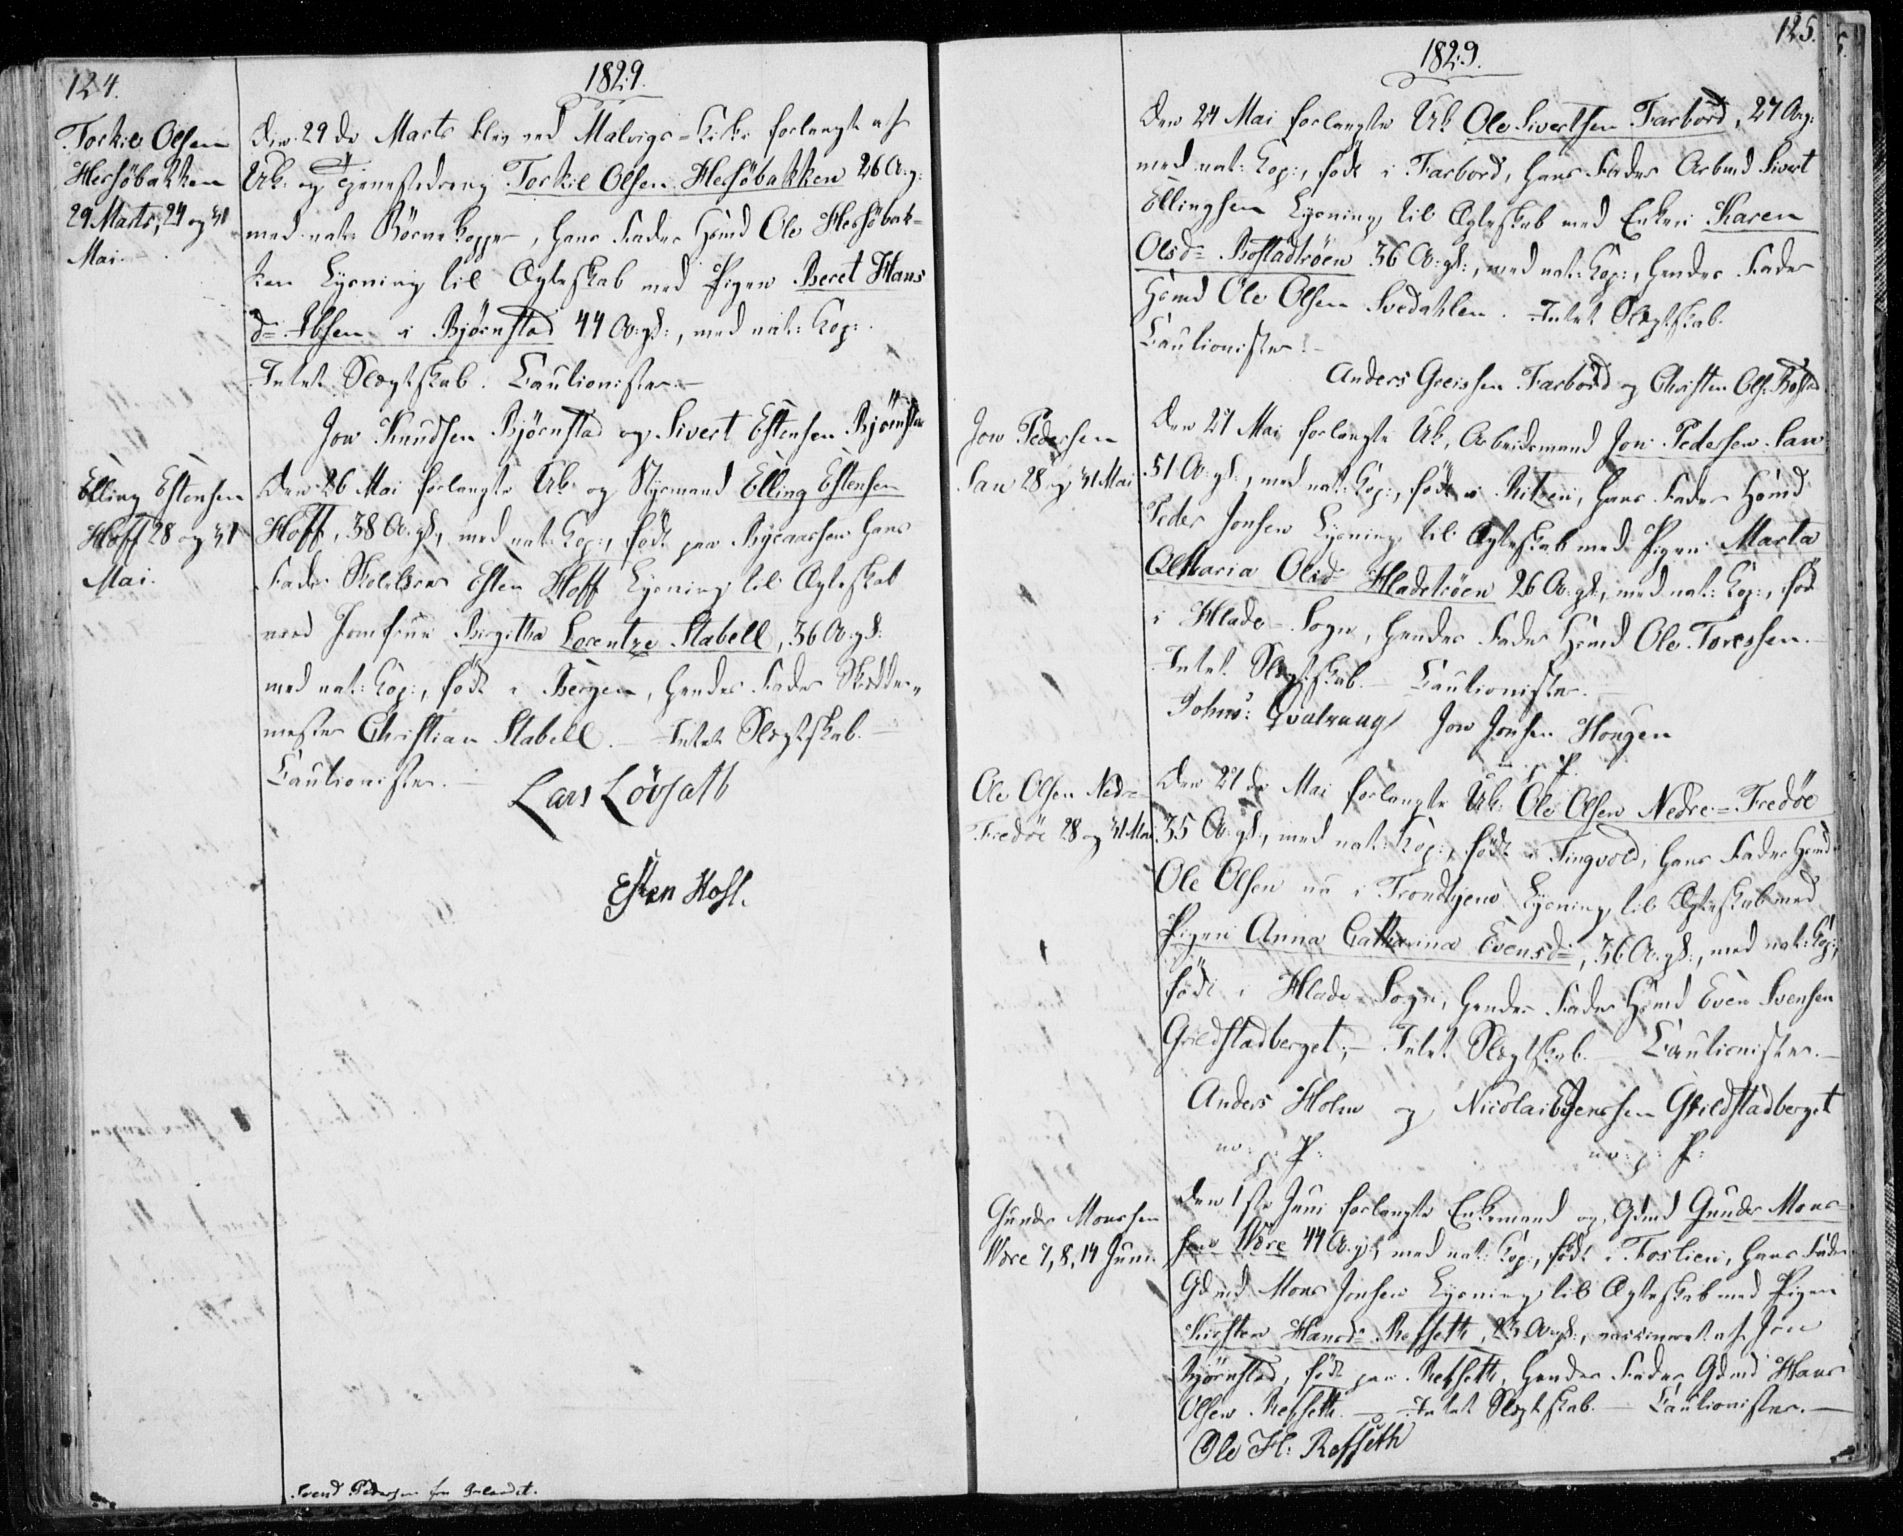 124.
1829.
Torkil Olsen
Hersøbakken
29 Marts, 24 og 31
Mai.
Den 29de Marts blev ved Malvigs=Kirke forlangt af
Uk: og Tjenestedreng Torkil Olsen Hersøbakken 26 A: g:
med nat: Børnekopper, hans Fader Hsmd Ole Hersøbak=
ken Lysning til Ægteskab med Pigen Beret Hans
d= Ibsen i Bjørnstad 44 A: gl:, med nat: Kop:.
Intet Slægtskab. Cautionister.—
Jon Knudsen Bjørnstad og Sivert Estensen Bjørnstad
Elling Estensen
Hoff 28 og 31
Mai.
Den 26 Mai forlangte Uk: og Styrmand Elling Estensen
Hoff, 38 A: gl:, med nat: Kop:, født paa Byeaasen hans
Fader Skolelærer Esten Hoff Lysning til Ægteskab
med Jomfrue Birgitha Lorentze Stabell, 36 A: gl:
med nat: Kop:, født i Bergen, hendes Fader Skrædder„
mester Christian Stabell. — Intet Slægtskab.—
Cautionister.—
Lars Løvsath
Esten Hoff.
Svend Pedersen fra
125.
1829.
Den 24 Mai forlangte Uk Ole Sivertsen Farbord, 27 A: g:
med nat: Kop:, født i Farbord, hans Fader Arbmd Sivert
Ellingsen Lysning til Ægteskab med Enken Karen
Olsd= Bostadtrøen 36 A: gl:, med nat: Kop:, hendes Fader
Hsmd Ole Olsen Svedahlen. Intet Slægtskab.
Cautionister:
Anders Greissen Farbord og Christen Ols: Bostad
Jon Pedersen
Lan 28 og 31 Mai
Den 27 Mai forlangte Uk, Arbeidsmand Jon Pedersen Lan
51 A: gl:, med nat: Kop:, født i Ritzen, hans Fader Hsmd
Peder Jonsen Lysning til Ægteskab med Pigen Marta
Maria Olsd= Hladetrøen 26 A: gl:, med nat: Kop:, født
i Hlade-Sogn, hendes Fader Hsmd Ole Toressen.
Intet Slægtskab.— Cautionister.—
Johns: Qvalvaag Jon Jonsen Hougen
m: p: P:
Ole Olsen Nedre=
Fredøe 28 og 31 Mai
Den 27de Mai forlangte Uk: Ole Olsen Nedre=Fredøe
35 A: gl:, med nat: Kop:, født i Tingvold, hans Fader Hsmd
Ole Olsen nu i Trondhjem Lysning til Ægteskab med
Pigen Anna Catharina Evensd=, 36 A: gl:, med nat: Kop:,
født i Hlade-Sogn, hendes Fader Hsmd Even Svensen
Grildstadberget;— Intet Slægtskab.— Cautionister.—
Anders Holm og Nicolai Evensen Grildstadberget
m: p: P: m: p: P:
Gunder Monssen
Være 7, 8, 14 Juni.
Den 1ste Juni forlangte Enkemand og Gdmd Gunder Mons
sen Være 44 A: gl:, med nat: Kop:, født i Foslien, hans Fader
Gdmd Mons Jonsen Lysning til Ægteskab med Pigen
Kirsten Hansd= Refseth, 23 A: gl:, vaccineret af Jon
Bjørnstad, født paa Refseth, hendes Fader Gdmd Hans
Olsen Refseth.— Intet Slægtskab.— Cautionister.—
Ole H: Refseth